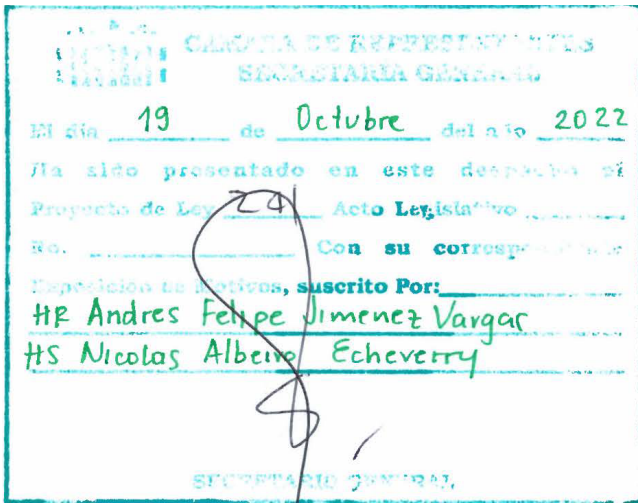 CAMARA DE REPRESENTANTES
SECRETARIA GENERAL
El día 19 de Octubre del año 2022
Ha sido presentado en este despacho el
Proyecto de Ley 241 Acto Legislativo
No. Con su correspondiente
Exposición de Motivos, suscrito Por:
HR Andres Felipe Jimenez Vargar
HS Nicolas Albeiro Echeverry
SECRETARIO GENERAL